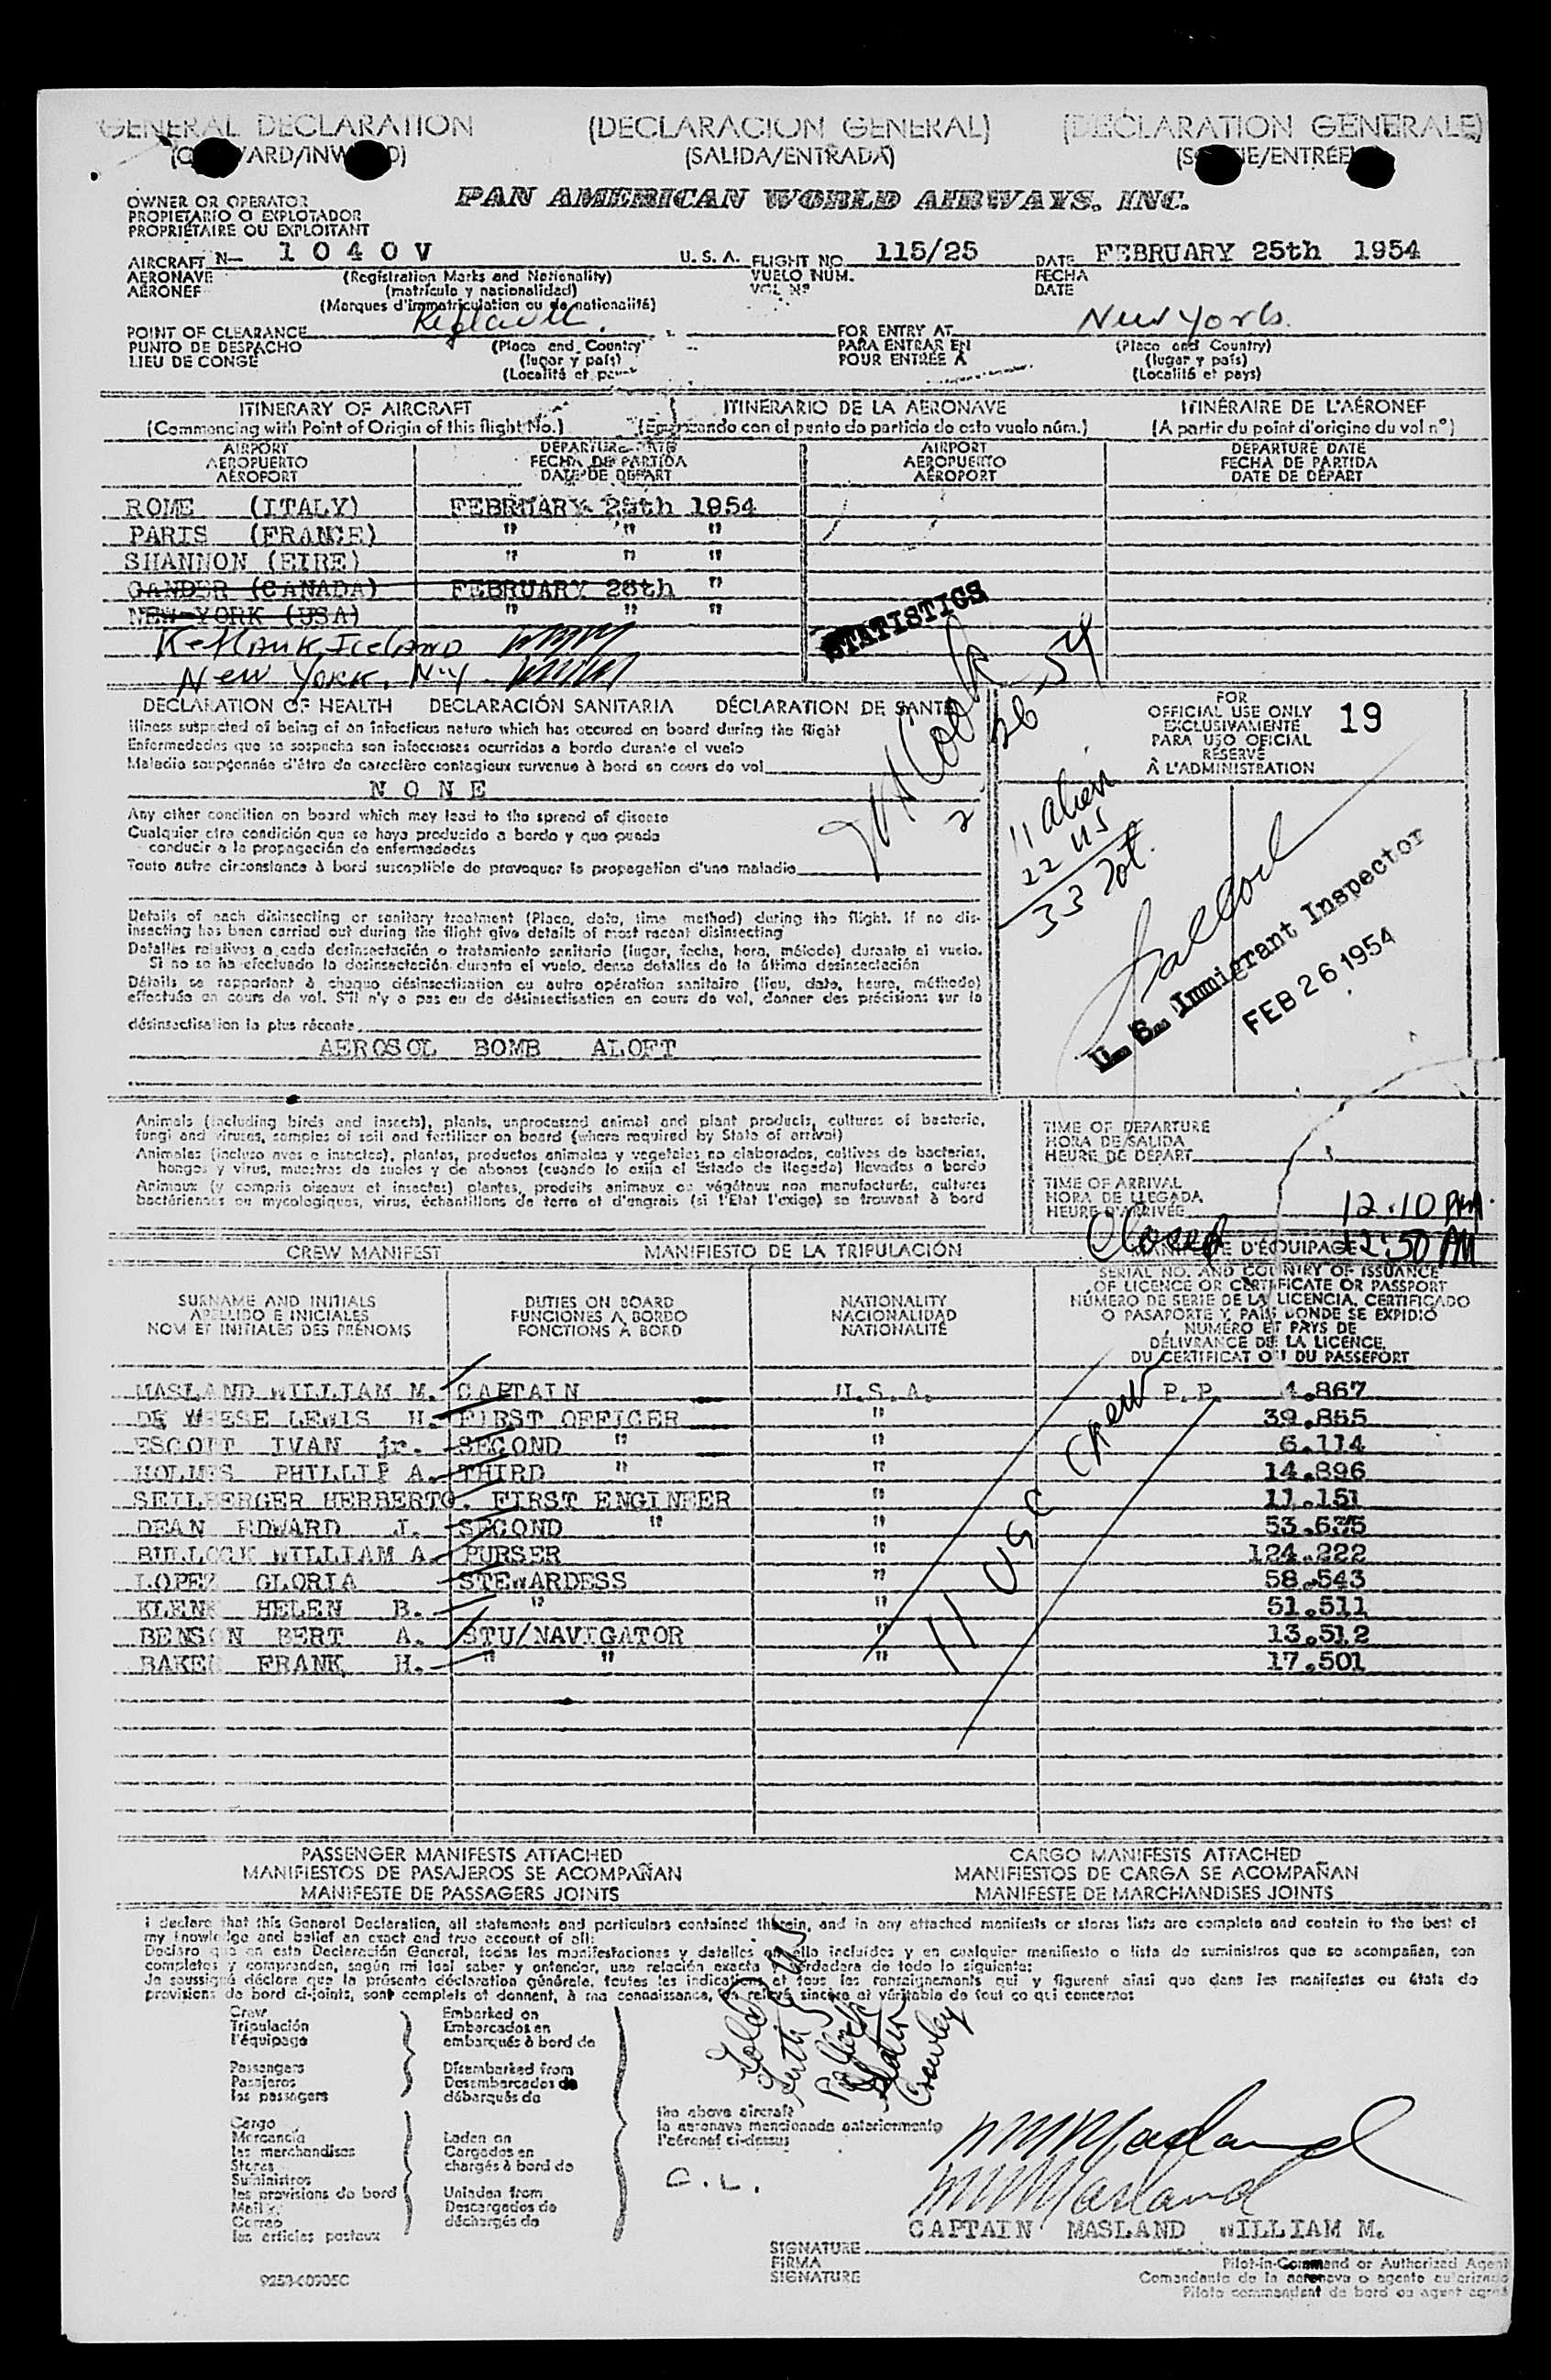 GENERAL DECLARATION (DECLARACION GENERAL) (DECLARATION GENERALE)
(SALIDA/ENTRADA)
OWNER OR OPERATOR
PROPIETARIO O EXPLOTADOR
PROPRIÉTAIRE OU EXPLOITANT
PAN AMERICAN WORLD AIRWAYS, INC.
AIRCRAFT N- 1 0 4 0 V U. S. A. FLIGHT NO. 115/25 DATE FEBRUARY 25th 1954
AERONAVE (Registration Marks and Nationality) VUELO NUM. FECHA
AÉRONEF (matrícula y nacionalidad) VOL Nº DATE
(Marques d'immatriculation ou de nationalité)
POINT OF CLEARANCE FOR ENTRY AT New York
PUNTO DE DESPACHO (Place and Country) PARA ENTRAR EN (Place and Country)
LIEU DE CONGÉ (lugar y país) POUR ENTRÉE A (lugar y país)
(Localité et pays) (Localité et pays)
ITINERARY OF AIRCRAFT ITINERARIO DE LA AERONAVE ITINÉRAIRE DE L'AÉRONEF
(Commencing with Point of Origin of this flight No.) (Empezando con el punto de partida de este vuelo núm.) (A partir du point d'origine du vol nº)
AIRPORT DEPARTURE DATE AIRPORT DEPARTURE DATE
AEROPUERTO FECHA DE PARTIDA AEROPUERTO FECHA DE PARTIDA
AÉROPORT DATE DE DEPART AÉROPORT DATE DE DÉPART
ROME (ITALY) FEBRUARY 25th 1954
PARIS (FRANCE) " " "
SHANNON (EIRE) " " "
GANDER (CANADA) FEBRUARY 26th "
NEW-YORK (USA) " " "
Keflavik, Iceland
New York, N.Y
STATISTICS
DECLARATION OF HEALTH DECLARACIÓN SANITARIA DÉCLARATION DE SANTÉ
Illness suspected of being of an infectious nature which has occured on board during the flight
Enfermedades que se sospecha son infecciosas ocurridas a bordo durante el vuelo
Maladie soupçonnée d'être de caractère contagieux survenue à bord en cours de vol
N O N E
Any other condition on board which may lead to the spread of disease
Cualquier otra condición que se haya producido a bordo y que pueda
conducir a la propagación de enfermedades
Toute autre circonstance à bord susceptible de provoquer la propagation d'une maladie
2 26 54
FOR
OFFICIAL USE ONLY 19
EXCLUSIVAMENTE
PARA USO OFICIAL
RÉSERVÉ
À L'ADMINISTRATION
11 alien
22 US
33 Tot.
U. S. Immigrant Inspector
FEB 26 1954
Details of each disinsecting or sanitary treatment (Place, date, time method) during the flight. If no dis-
insecting has been carried out during the flight give details of most recent disinsecting
Detalles relativos a cada desinsectación o tratamiento sanitario (lugar, fecha, hora, método) durante el vuelo.
Si no se ha efectuado la desinsectación durante el vuelo, dense detalles de la última desinsectación
Détails se rapportant à chaque désinsectisation ou autre opération sanitaire (lieu, date, heure, méthode)
effectuée en cours de vol. S'il n'y a pas eu de désinsectisation en cours de vol, donner des précisions sur la
désinsectisation la plus récente
AEROSOL BOMB ALOFT
Animals (including birds and insects), plants, unprocessed animal and plant products, cultures of bacteria,
fungi and viruses, samples of soil and fertilizer on board (where required by State of arrival)
Animales (incluso aves e insectos), plantas, productos animales y vegetales no elaborados, cultivos de bacterias,
hongos y virus, muestras de suelos y de abonos (cuando lo exija el Estado de llegada) llevados a bordo
Animaux (y compris oiseaux et insectes) plantes, produits animaux ou végétaux non manufacturés, cultures
bactériennes ou mycologiques, virus, échantillons de terre et d'engrais (si l'Etat l'exige) se trouvant à bord
TIME OF DEPARTURE
HORA DE SALIDA
HEURE DE DÉPART
TIME OF ARRIVAL
HORA DE LLEGADA
HEURE D'ARRIVÉE 12.10 PM.
Closed 12:50 PM
CREW MANIFEST MANIFIESTO DE LA TRIPULACIÓN MANIFESTE D'ÉQUIPAGE
SURNAME AND INITIALS DUTIES ON BOARD NATIONALITY SERIAL NO. AND COUNTRY OF ISSUANCE
APELLIDO E INICIALES FUNCIONES A BORDO NACIONALIDAD OF LICENCE OR CERTIFICATE OR PASSPORT
NOM ET INITIALES DES PRÉNOMS FONCTIONS À BORD NATIONALITÉ NÚMERO DE SERIE DE LA LICENCIA, CERTIFICADO
O PASAPORTE Y PAIS DONDE SE EXPIDIÓ
NUMÉRO ET PAYS DE
DÉLIVRANCE DE LA LICENCE,
DU CERTIFICAT OU DU PASSEPORT
MASLAND WILLIAM M. CAPTAIN U.S.A. P.P. 4.867
DE WEESE LEWIS H. FIRST OFFICER " 39.855
ESCOTT IVAN jr. SECOND " " 6.114
HOLMES PHILLIP A. THIRD " " 14.896
SEILBERGER HERBERT G. FIRST ENGINEER " 11.151
DEAN EDWARD J. SECOND " "
BULLOCK WILLIAM A. PURSER " 124.222
LOPEZ GLORIA STEWARDESS " 58.543
KLENK HELEN B. " " 51.511
BENSON BERT A. STU/NAVIGATOR " 13.512
BAKER FRANK H. " " " 17.501
11 USC Crew
PASSENGER MANIFESTS ATTACHED CARGO MANIFESTS ATTACHED
MANIFIESTOS DE PASAJEROS SE ACOMPAÑAN MANIFIESTOS DE CARGA SE ACOMPAÑAN
MANIFESTE DE PASSAGERS JOINTS MANIFESTE DE MARCHANDISES JOINTS
I declare that this General Declaration, all statements and particulars contained therein, and in any attached manifests or stores lists are complete and contain to the best of
my knowledge and belief an exact and true account of all:
Declaro que en esta Declaración General, todas las manifestaciones y detalles en ella incluídos y en cualquier manifiesto o lista de suministros que se acompañan, son
completos y comprenden, según mi leal saber y entender, una relación exacta y verdadera de todo lo siguiente:
Je soussigné déclare que la présente déclaration générale, toutes les indications et tous les renseignements qui y figurent ainsi que dans les manifestes ou états de
provisions de bord ci-joints, sont complets et donnent, à ma connaissance, un relevé sincère et véritable de tout ce qui concerne:
Crew Embarked on
Tripulación Embarcados en
l'équipage embarqués à bord de
Passengers Disembarked from
Pasajeros Desembarcados de
les passagers débarqués de
Cargo
Mercancía Laden on
les marchandises Cargados en
Stores chargés à bord de
Suministros
les provisions de bord Unladen from
Mail Descargados de
Correo déchargés de
les articles postaux
the above aircraft
la aeronave mencionada anteriormente
l'aéronef ci-dessus
Crowley
C. L.
WMMasland
WMMasland
CAPTAIN MASLAND WILLIAM M.
SIGNATURE
FIRMA
SIGNATURE
Pilot-in-Command or Authorized Agent
Comandante de la aeronave o agente autorizado
Pilote commandant de bord ou agent agréé